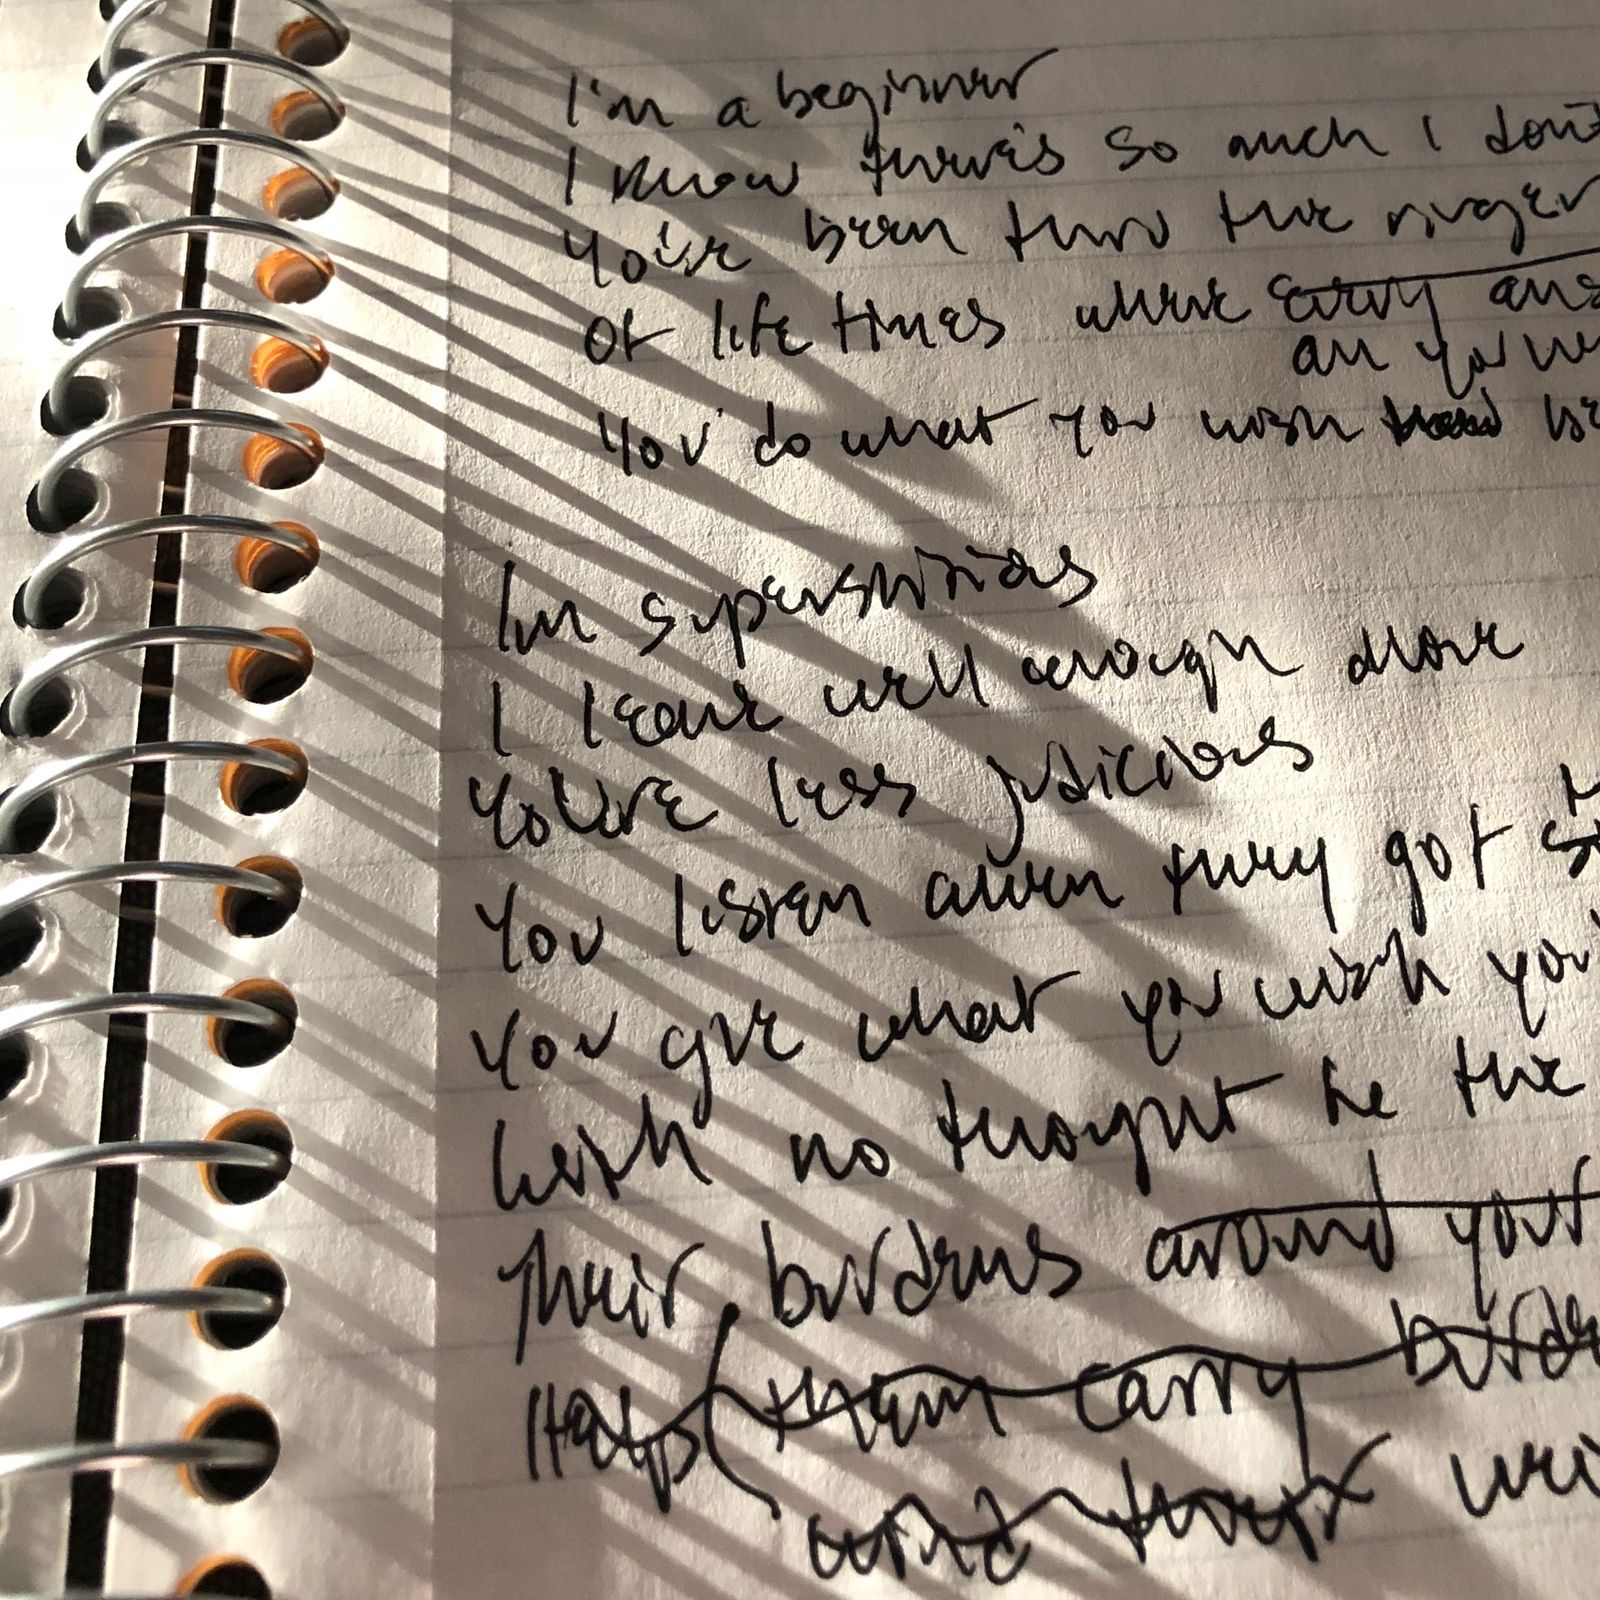 I'm a beginner
I know there's so much I don't
You've been thru the ringer
of life times where every
all your
You do what you wish
I'm superstitious
I leave well enough alone
You're less judicious
You listen when they got
You give what you wish you'd
With no thought to the
Their burdens around your
Helps them carry
wind their